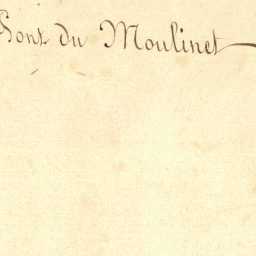 Pont du Moulinet